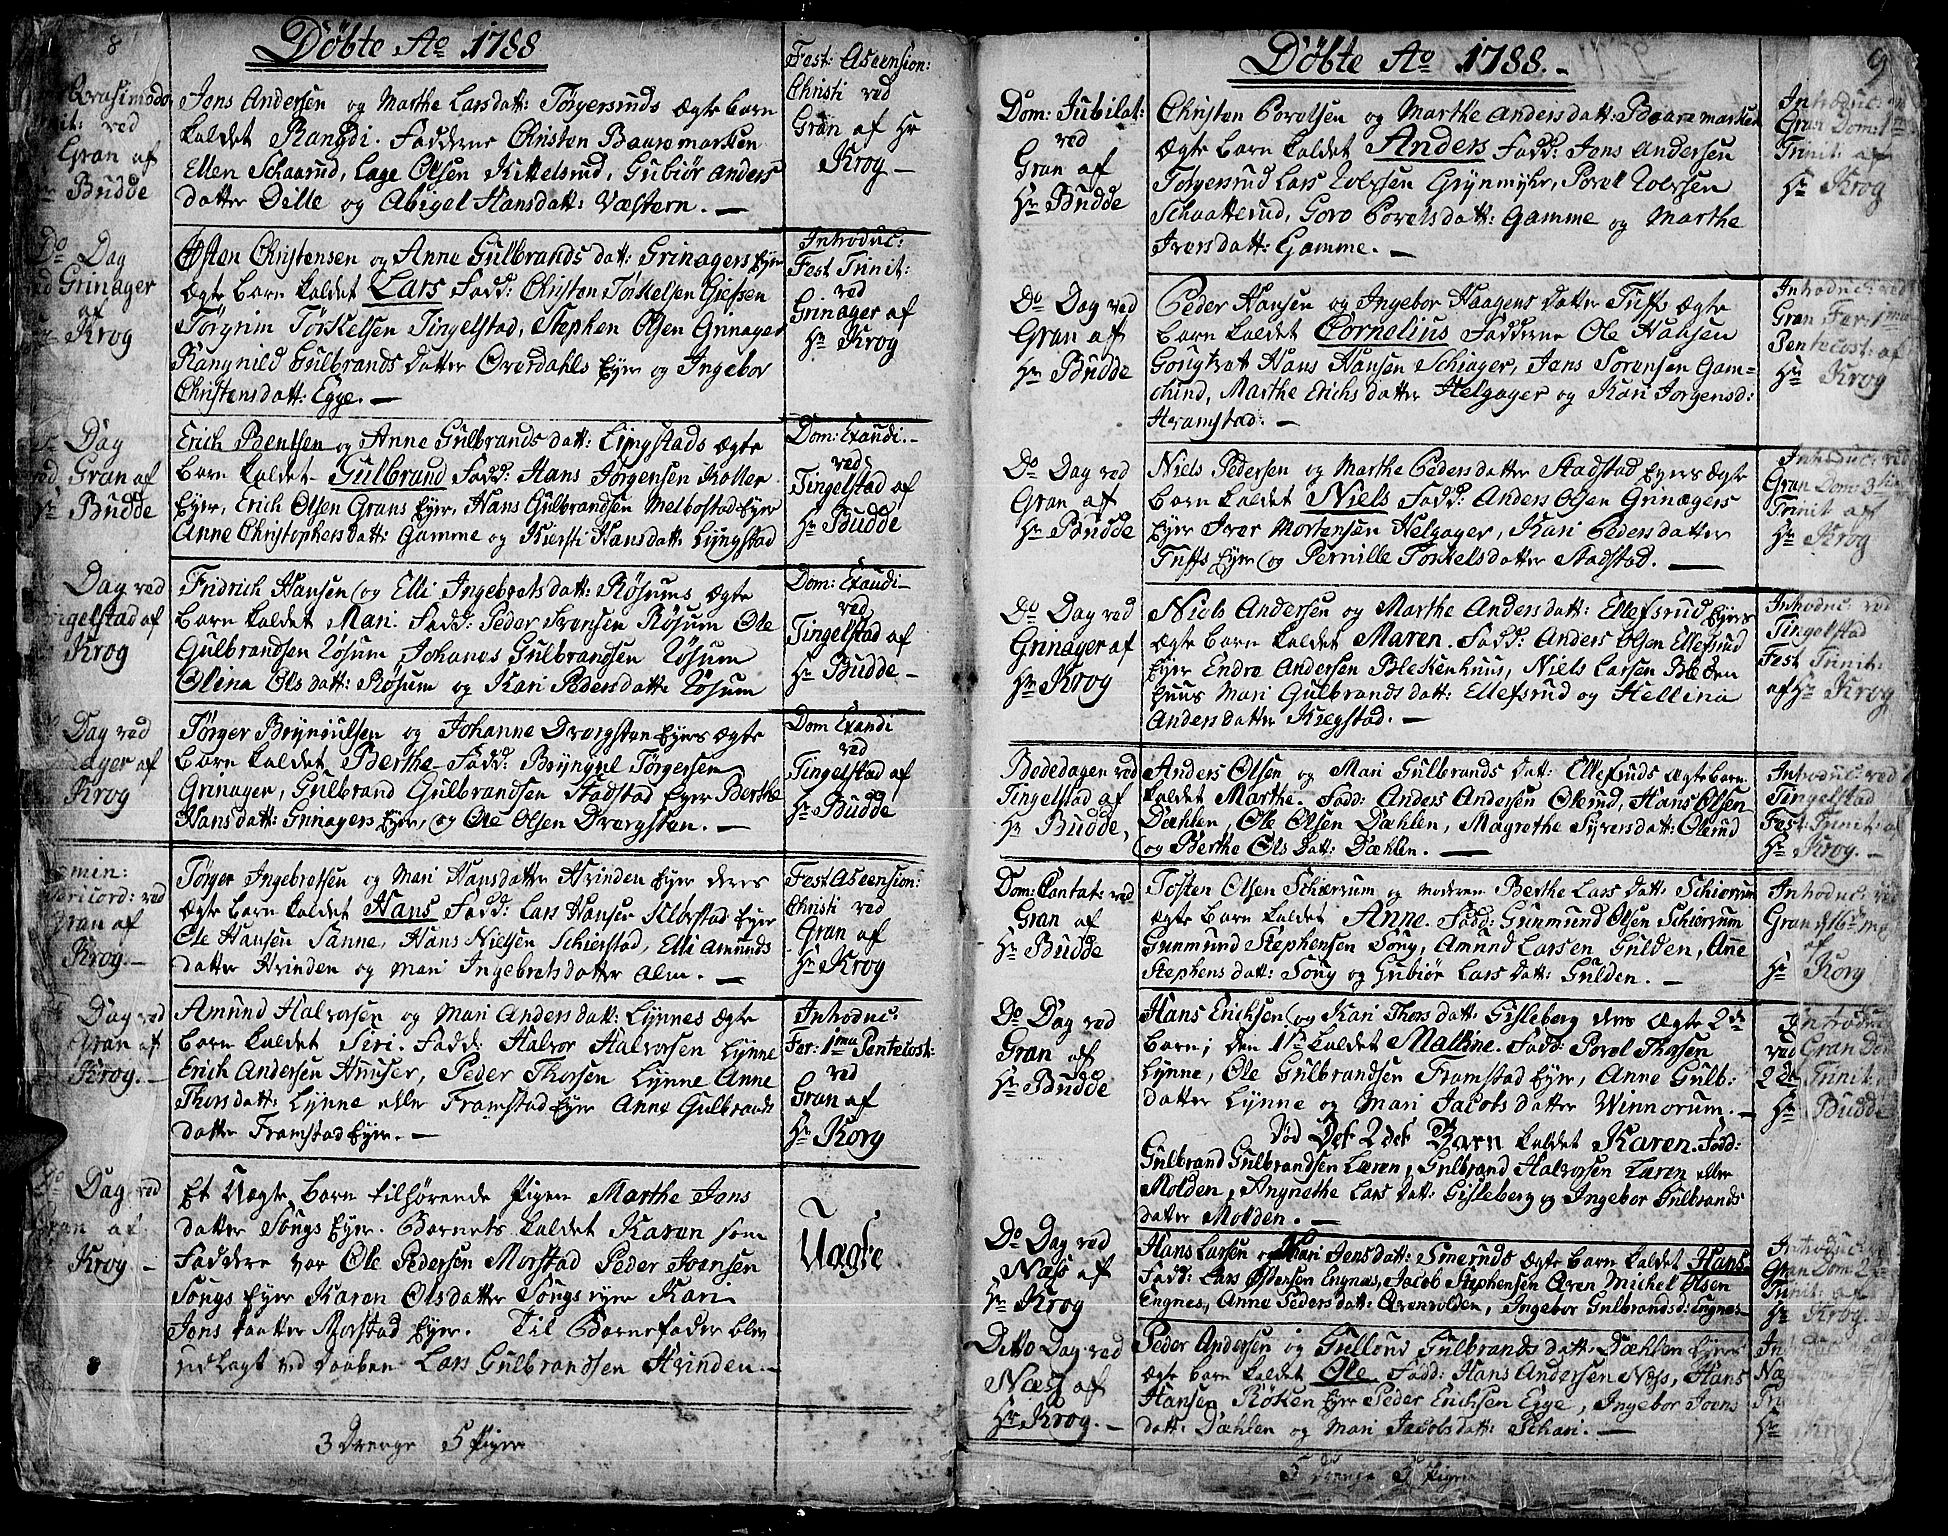 8
Döbte Ao 1788
Qvasimodo
nit: ved
Gran af
Hr Budde
Jens Andersen og Marthe Larsdatt: Törgersruds Ægte barn
kaldet Rangdi. Fadderne Christen Baaremarken
Ellen Schaarud, Lage Olsen Kittelsrud, Gubiör Anders
datter Dille og Abigel Hansdatt: Væstern. —
Fest: Ascension:
Christi ved
Gran af Hr
Krog —
Do Dag
ved Grinager
af
Hr Krog
Østen Christensen og Anne Gulbrands datt: Grinagers Eyer
Ægte barn kaldet Lars Fadd: Christen Törkelsen
Törgrim Törkelsen Tingelstad, Stephen Olsen Grinager
Rangnild Gulbrands datter Overdahls Eyer og Ingebor
Christensdatt: Egge. —
Introduc:
Fest Trinit:
ved
Grinager af
Hr Krog
Dag
ved Gran af
Hr Budde
Erich Bentsen og Anne Gulbrands datt: Lyngstads Ægte
barn kaldet Gulbrand Fadd: Hans Jörgensen Koller
Eyer, Erich Olsen Grans Eyer, Hans Gulbrandsen Melbostad Eyer
Anne Christophersdatt: Gamme og Kiersti Hansdatt: Lyngstad
Dom: Exaudi. —
ved
Tingelstad af
Hr Budde
Dag ved
Tingelstad af
Krog
Fridrich Hansen og Elli Ingebretsdatt: Rösums Ægte
barn kaldet Mari. Fadd: Peder Iversen Rösum Ole
Gulbrandsen Rösum Johanes Gulbrandsen Rösum
Olina Ols datt: Rösum og Kari Pedersdatter Rösum
Dom: Exaudi —
ved
Tingelstad af
Hr Budde —
Dag ved
ager af
Krog
Törger Bryngulsen og Johanne Drorgsten Eyers Ægte
barn kaldet Berthe Fadd: Bryngel Törgersen
Grinager, Gulbrand Gulbrandsen Stadstad Eyer Berthe
Hansdatt: Grinagers Eyer, og Ole Olsen Drorgsten. —
Dom Exaudi
ved
Tingelstad af
Hr Budde
Domin:
Misericord: ved
Gran af
Krog. —
Törger Ingebretsen og Mari Hansdatter Hvinden Eyer deres
Ægte barn kaldet Hans Fadd: Lars Hansen Eyer
Ole Hansen Sanne, Hans Nielsen Schierstad, Elli Amunds
datter Hvinden og Mari Ingebretsdatter Alm. —
Fest Ascension:
Christi ved
Gran af
Hr Krog
Dag ved
Gran af
Krog. —
Amund Halvorsen og Mari Andersdatt: Lynnes Ægte
barn kaldet Siri. Fadd: Halvor Halvorsen Lynne
Erich Andersen Huuser, Peder Thorsen Lynne Anne
Thorsdatt: Lynne eller Framstad Eyer Anne Gulbrands
datter Framstad Eyer. —
Introduc:
Fer: 1ma Pentecost:
ved
Gran af
Hr Korg
Do Dag ved
Gran af
Krog —
Et Uægte barn tilhørende Pigen Marthe Jens
datter Söngs Eyer. Barnets kaldet Karen som
Faddere var Ole Pedersen Morstad Peder Joensen
Söngs Eyer Karen Olsdatter Söngs Eyer Kari
Jens daatter Morstad Eyer. Til Barnefader blev
udlagt ved daaben Lars Gulbrandsen Hvinden. —
Uægte
3 Drenge 5 Piger
9
Döbte Ao 1788. —
Dom: Jubilat:
ved
Gran af
Hr Budde
Christen Povelsen og Marthe Andersdatt: Baaremarken
Ægte barn kaldet Anders Fadd: Jens Andersen
Törgersrud Lars Iversen Grynmyhr, Povel Iversen
Schaatterud, Goro Povelsdatt: Gamme og Marthe
Iversdatt: Gamme. —
Introduc:
Gran Dom: 1ma
Trinit: af
Hr Krog
Do Dag ved
Gran af
Hr Budde
Peder Hansen og Ingebor Haagens datter Tuffs Ægte
barn kaldet Cornelius Fadderne Ole Hansen
Hans Hansen Schiager, Jens Sorensen Gam=
, Marthe Erichs datter Helgager og Kari Jorgensd:
Framstad: —
Introduc: ved
Gran Fer: 1ma
Pentecost: af
Hr Krog
Do Dag ved
Gran af
Hr Budde
Niels Pedersen og Marthe Pedersdatter Stadstad Eyers Ægte
barn kaldet Niels Fadd: Anders Olsen Grinægers
Eyer Iver Mortensen Helgager, Kari Pedersdatter
Tuffs Eyer og Pernille Torkelsdatter Stadstad. —
Introduc: ved
Gran Dom: 3tia
Trinit af
Hr Krog
Do Dag ved
Grinager af
Hr Krog
Niels Andersen og Marthe Andersdatt: Ellefsrud Eyers
Ægte barn kaldet Maren. Fadd: Anders Olsen Ellefsrud
Eyer Endre Andersen Blekenhuus, Niels Larsen Bleken
huus Mari Gulbrandsdatt: Ellefsrud og Hellina
Andersdatter Kiegstad. —
Introduc: ved
Tingelstad
Fest Trinit:
af Hr Krog
Bededagen ved
Tingelstad af
Hr Budde,
Anders Olsen og Mari Gulbrands datt: Ellefsruds Ægte barn
kaldet Marthe. Fadd: Anders Andersen Ølerud, Hans Olsen
Dæhlen, Ole Olsen Dæhlen, Magrethe Syversdatt: Ølerud
og Berthe Ols datt: Dæhlen. —
Introduc: ved
Tingelstad
Fest: Trinit: af
Hr Krog. —
Dom: Cantate ved
Gran af
Hr Budde
Tosten Olsen Schierrum og moderen Berthe Lars datt: Schierrum
Ægte barn kaldet Anne. Fadd: Gunmund Olsen Schierrum
Gunmund Stephensen Söng, Amund Larsen Gulden, Anne
Stephens datt: Söng og Gubiör Lars datt: Gulden. —
Introduc: ved
Gran d 16de Maj
af
Hr Korg
Do Dag ved
Gran af
Hr Budde
Hans Erichsen og Kari Thorsdatt: Gisleberg deres Ægte 2de
barn; den 1ste kaldet Mallene. Fadd: Povel Thorsen
Lynne, Ole Gulbrandsen Framstad Eyer, Anne Gulb:
datter Lynne og Mari Jacobs datter Winnorum. —
Död Det 2det Barn kaldet Karen. Fadd:
Gulbrand Gulbrandsen Læren, Gulbrand Halvorsen Læren eller
Molden, Angnethe Lars datt: Gisleberg og Ingebor Gulbrands
datter Molden. —
Introduc
ved Gran Dom
2de Trinit:
Hr Budde
Do Dag ved
Næs af
Hr Krog
Hans Larsen og Kari Jensdatt: Smeruds Ægte barn kaldet Hans
Fadd: Lars Østensen Engnæs, Jacob Stephensen Aren Michel Olsen
Engnes, Anne Pedersdatt: Arenvolden, Ingebor Gulbrandsd: Engnes
Introduc:
Gran Dom 2de
Trinit: af
Hr Krog.
Ditto Dag ved
Næs af
Hr Krog. —
Peder Andersen og Gullouv Gulbrands datt: Dæhlen Eyers
Ægte barn kaldet Ole Fadd: Hans Andersen Næss, Hans
Hansen Röken Eyer Peder Erichsen Egge, Ingebor Joens
datt: Dæhlen og Mari Jacobsdatt: Schari. —
Hr Krog
5 Drenge 5 Piger